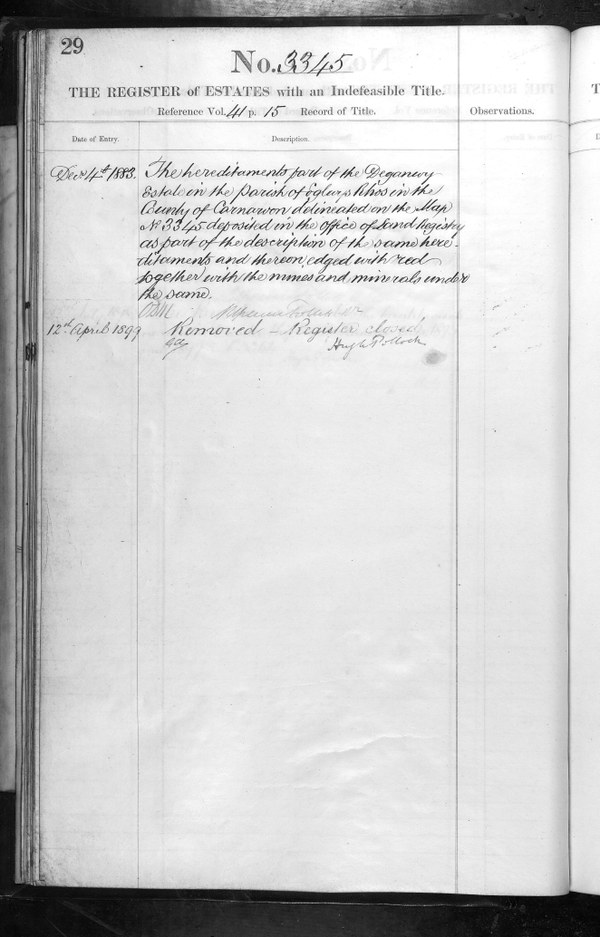 29
No. 3345
THE REGISTER of ESTATES with an Indefeasible Title.
Reference Vol. 41 p. 15 Record of Title.
Observations.
Date of Entry.
Description.
Decr 4th 1883.
The hereditaments part of the Deganwy
Estate in the Parish of Eglwys Rhos in the
County of Carnarvon delineated on the Map
No 3345 deposited in the office of Land Registry
as part of the description of the same here-
ditaments and thereon edged with red
together with the mines and minerals under
the same.
12th April 1899
Removed — Register closed
Hugh Pollock